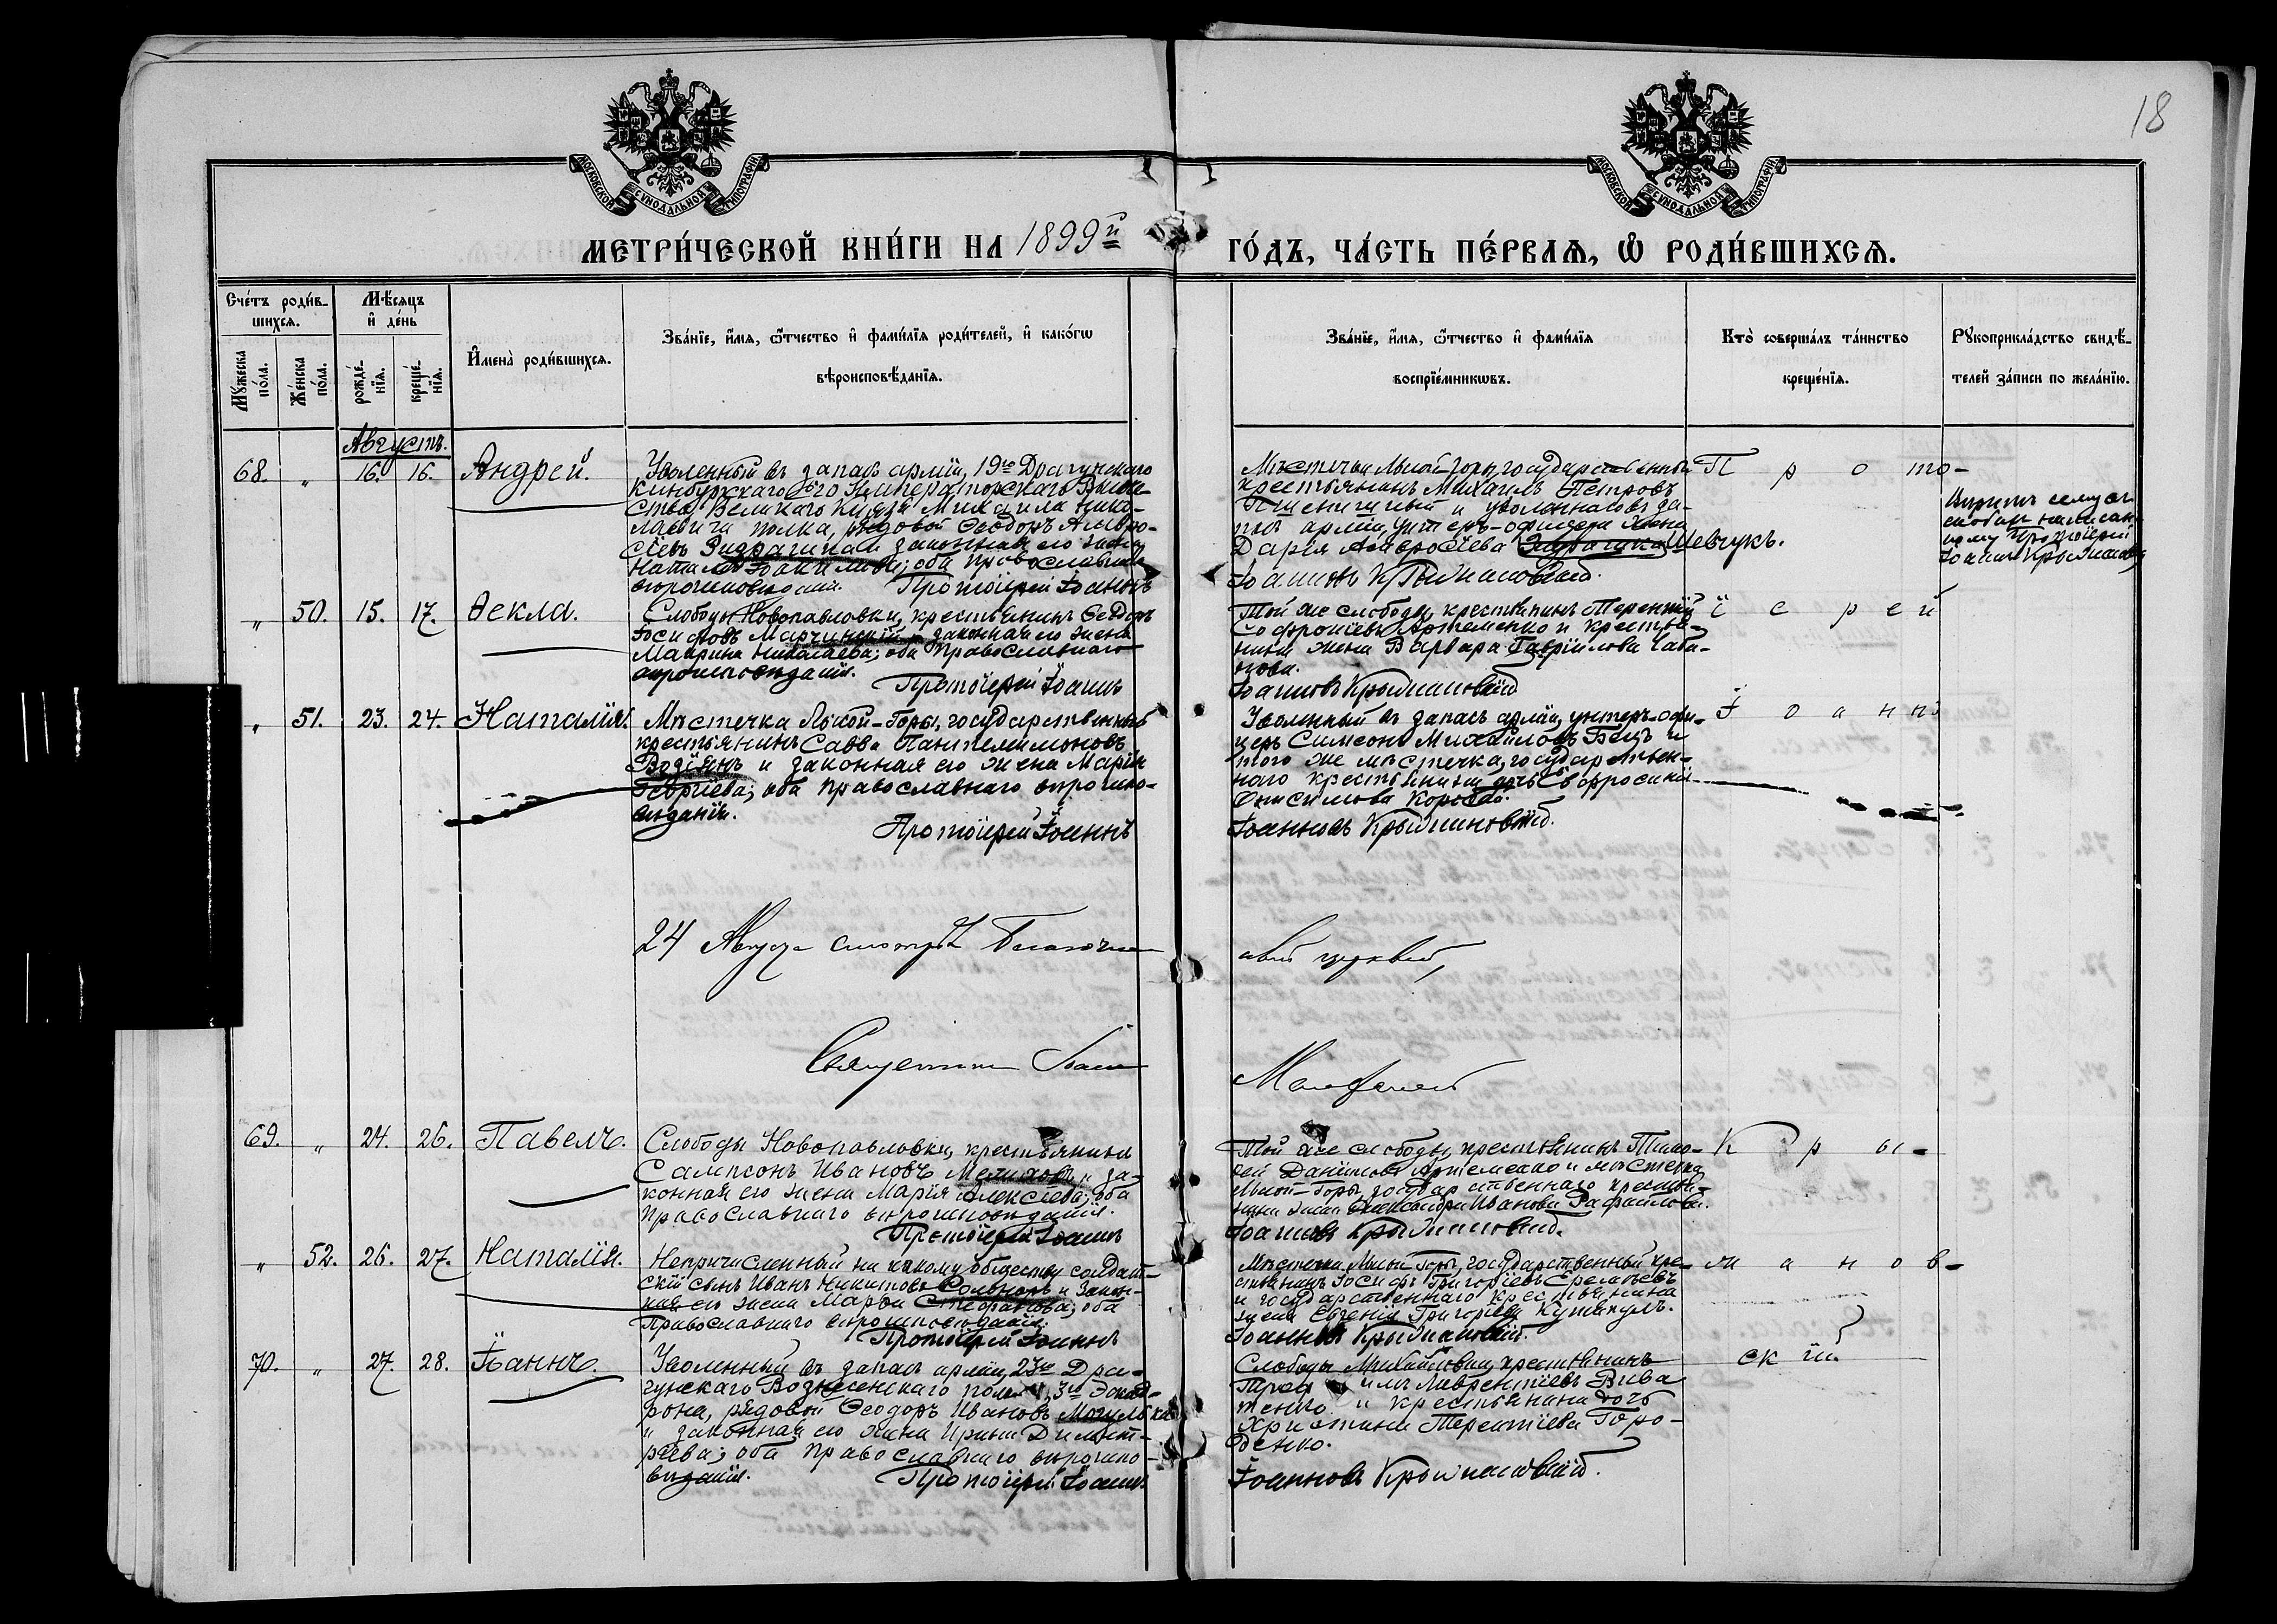 18
МОСКОВСКОЙ СѴНОДАЛЬНОЙ ТИПОГРАФІИ
МОСКОВСКОЙ СѴНОДАЛЬНОЙ ТИПОГРАФІИ
МЕТРИ́ЧЕСКОЙ КНИ́ГИ НА 1899й ГО́ДЪ, ЧА́СТЬ ПЕ́РВАѦ, Ѽ РОДИ́ВШИХСѦ.
Сче́тъ роди́в-
шихсѧ.
Мꙋжеска по́ла.
Же́нска по́ла.
Мѣ́сѧцъ
и҆ де́нь
рожде́-
нїѧ.
креще́-
нїѧ.
И҆мена̀ роди́вшихсѧ.
Зва́нїе, и҆́мѧ, ѻ҆́тчество и҆ фами́лїѧ роди́телей, и҆ како́гѡ
вѣроисповѣ́данїѧ.
Зва́нїе, и҆́мѧ, ѻ҆́тчество и҆ фами́лїѧ
воспрїе́мникѡвъ.
Кто̀ соверша́лъ та́инство
креще́нїѧ.
Рꙋкоприкла́дство свидѣ́-
телей за́писи по жела́нїю.
Августъ.
68. „ 16. 16. Андрей.
Уволенный въ запасъ арміи, 19го Драгунскаго
Кинбурскаго Его Императорскаго Высоче-
ства Великаго Князя Михаила Нико-
лаевича полка, рядовой Ѳеодоръ Амвро-
сіевъ и законная его жена
Наталія Іоакимова; оба православнаго
вѣроисповѣданія. Протоіерей Іоаннъ
Мѣстечка Лысой-Горы, государственный
крестьянинъ Михаилъ Петровъ
и уволеннаго въ за-
пасъ арміи, унтеръ-офицера жена
Дарія Амвросіева Шевчукъ.
Іоанновъ Крыжановскій.
П р о то-
написан-
ному Протоіерей
Іоаннъ Крыжановскій
„ 50. 15. 17. Ѳекла.
Слободы Новопавловки, крестьянинъ Ѳеодоръ
Іосифовъ Марчинскій и законная его жена
Марина Николаева; оба православнаго
вѣроисповѣданія.
Протоіерей Іоаннъ
Той же слободы, крестьянинъ Терентій
Софроніевъ Артеменко и крестья-
нина жена Варвара Гавріилова Чаба-
нова.
Іоанновъ Крыжановскій
і е р ей
„ 51. 23. 24. Наталія.
Мѣстечка Лысой-Горы, государственный
крестьянинъ Савва Пантелеимоновъ
Водзянъ и законная его жена Марія
Георгіева; оба православнаго вѣроиспо-
вѣданія.
Протоіерей Іоаннъ
Уволенный въ запасъ арміи, унтеръ-офи-
церъ Симеонъ Михайловъ Бецъ и
того же мѣстечка, государствен-
наго крестьянина дочь Евфросинія
Онисимова
Іоанновъ Крыжановскій.
І о а н нъ
24 Августа смотрѣлъ Благочинный церквей,
Священникъ Іоаннъ
69. „ 24. 26. Павелъ.
Слободы Новопавловки, крестьянинъ
Сампсонъ Ивановъ Мелиховъ и за-
конная его жена Марія Алексіева; оба
православнаго вѣроисповѣданія.
Протоіерей Іоаннъ
Той же слободы, крестьянинъ Тимо-
ѳей Даніиловъ Артеменко и мѣстечка
Лысой-Горы, государственнаго крестья-
нина жена Александра Иванова Рафаилова.
Іоанновъ Крыжановскій.
К р ы-
„ 52. 26. 27. Наталія.
Непричисленный ни къ какому обществу солдат-
скій сынъ Иванъ Никитовъ и закон-
ная его жена Марѳа Стефанова; оба
православнаго вѣроисповѣданія.
Протоіерей Іоаннъ
Мѣстечка Лысой Горы, государственный кре-
стьянинъ Іосифъ Григоріевъ Еремѣевъ
и государственнаго крестьянина
жена Евгенія Григоріева
Іоанновъ Крыжановскій.
ж а н о в-
70. „ 27. 28. Іоаннъ.
Уволенный въ запасъ арміи, 23го Дра-
гунскаго Вознесенскаго полка, 3го Эскад-
рона, рядовой Ѳеодоръ Ивановъ Могулька
и законная его жена Ирина Димит-
ріева; оба православнаго вѣроиспо-
вѣданія. Протоіерей Іоаннъ
Слободы Михайловки, крестьянинъ
Лаврентіевъ
и крестьянина дочь
Христина Терентіева Горо-
денко.
Іоанновъ Крыжановскій.
ск ій.